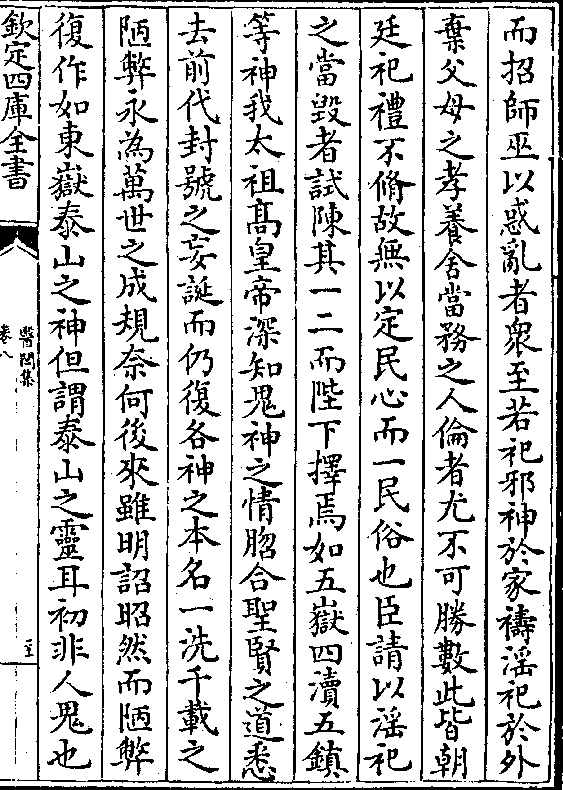 而招師巫以惑亂者衆至若祀邪神於家禱淫祀於外
棄父母之孝養舍當務之人倫者尤不可勝數此皆朝
廷祀禮不脩故無以定民心而一民俗也臣請以淫祀
之當毀者試陳其一二而陛下擇焉如五嶽四瀆五鎮
等神我太祖高皇帝深知鬼神之情脗合聖賢之道悉
去前代封號之妄誕而仍復各神之本名一洗千載之
陋弊永為萬世之成規奈何後來雖明詔昭然而陋弊
復作如東嶽泰山之神但謂泰山之靈耳初非人鬼也
欽定四庫全書
醫閭集
卷八